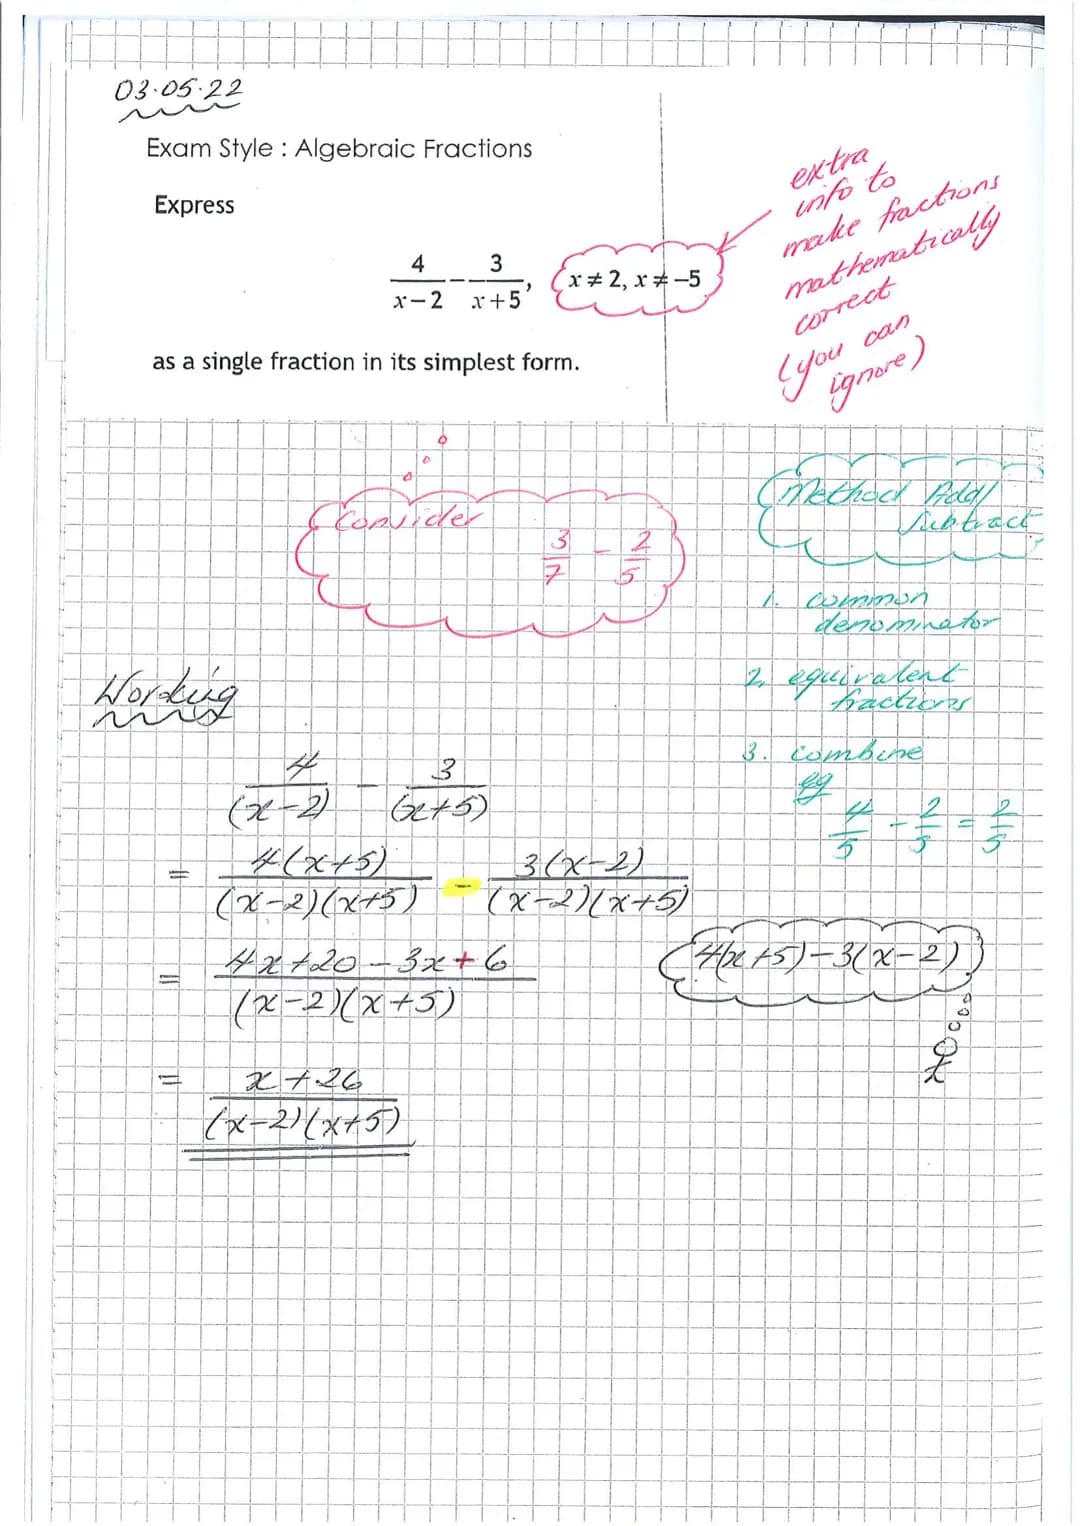 03.05.22
Exam Style : Algebraic Fractions
Express
4/(x−2) − 3/(x+5), x ≠ 2, x ≠ −5
as a single fraction in its simplest form.
extra
info to
make fractions
mathematically
correct
(you can
ignore)
Consider
3/7 − 2/5
Method Add/
Subtract
1. common
denominator
2, equivalent
fractions
3. combine
eg
4/5 − 2/5 = 2/5
Working
4/(x−2) − 3/(x+5)
= 4(x+5)/(x−2)(x+5) − 3(x−2)/(x−2)(x+5)
= 4x+20−3x+6/(x−2)(x+5)
4(x+5)−3(x−2)
= x+26/(x−2)(x+5)